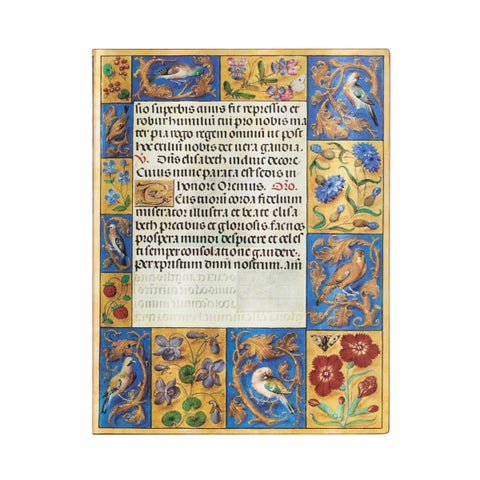 sio superbis cuius fit repressio et
robur humilium cui pro nobis ma
ter pia rogo regem omnium ut post
hoc exilium nobis det vera gaudia.
V. Diffusa est
Cuius munere parata est sedis in
honore Oremus. Oro.
Deus tuorum corda fidelium
miserator illustra et beate elisa
beth precibus et gloriosis. fac nos
prospera mundi despicere et celes
ti semper consolatione gaudere.
Per xpristum dnum nostrum. am